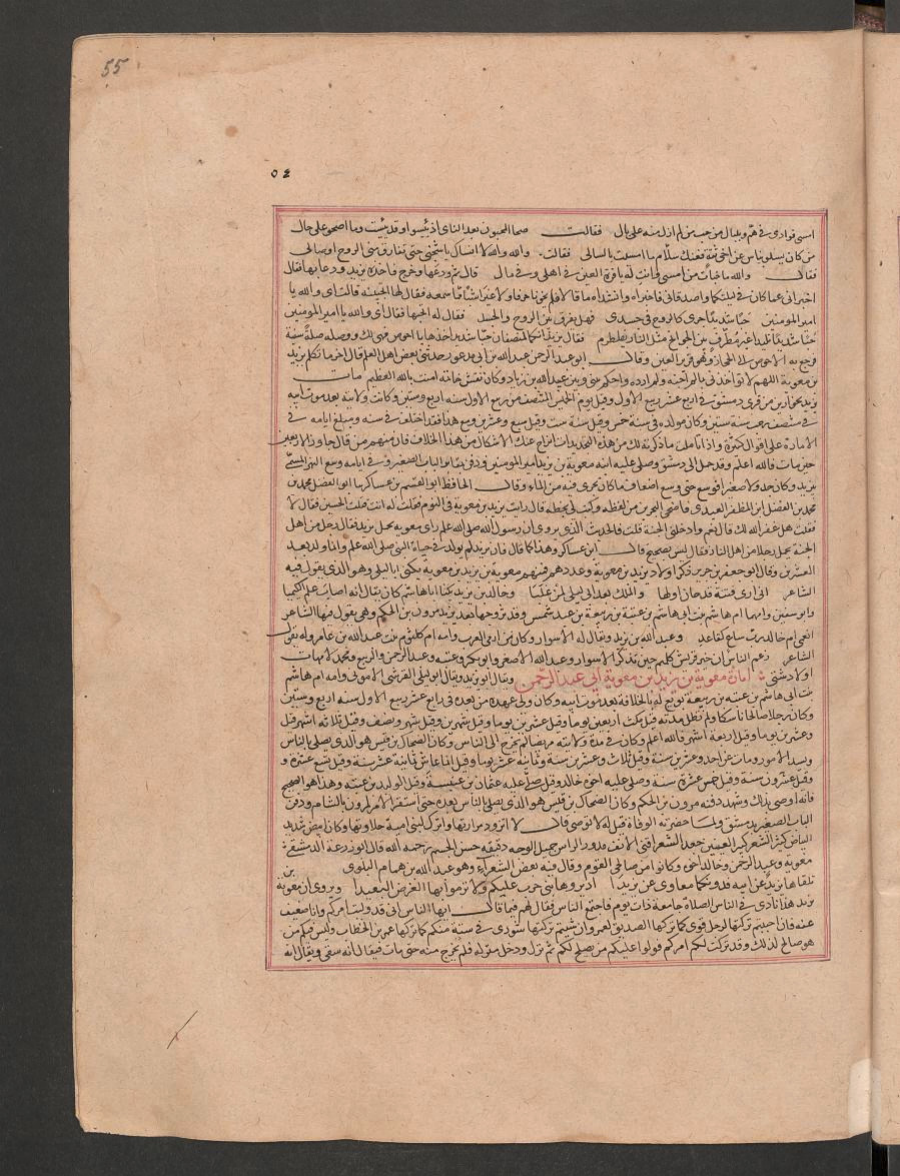 55
٥٤
امسى فوادى فى هم وبلبال من حب من لم ازل منه على بال فقالت صحا المحبون بعد الناى اذ يئسوا وقد يئست وما اصحو على حال
من كان يسلو بياس عن اخى ثقة فعنك سلام ما امسيت بالسالى فقالت والله والله لا انساك يا سكنى حتى تفارق منى الروح اوصالى
فقال والله ما خاب من امسى وانت له يا قرة العين فى اهل وفى مال قال ثم ودعها وخرج فاخذه يزيد ودعا بها فقال
اخبرانى عما كان فى ليلتكما واصدقانى فاخبراه وانشداه ما قالا فلم يخرما حرفا ولا غيرا شيئا مما سمعه فقال لها اتحبينه قالت اى والله يا
امير المومنين حبا شديدا جرى كالروح فى جسدى فهل يفرق بين الروح والجسد فقال له اتحبها فقال اى والله يا امير المومنين
حبا شديدا تليدا غير مطرف بين الجوانح مثل النار يضطرم فقال يزيد انكما لتصفان حبا شديدا خذها يا احوص فهى لك ووصله صلة سنية
فرجع به الاحوص الى الحجاز وهو قرير العين وقال ابو عبد الرحمن عبد الله بن ابى مدعور حدثنى بعض اهل العلم قال اخر ما تكلم به يزيد
بن معوية اللهم لا تواخذنى بما لم احبه ولم ارده واحكم بينى وبين عبيد الله بن زياد وكان نقش خاتمه امنت بالله العظيم مات
يزيد بحوارين من قرى دمشق فى اربع عشر ربيع الاول وقيل يوم الخميس المنتصف من ربيع الاول سنه اربع وستين وكانت ولايته بعد موت ابيه
فى منتصف رجب سنة ستين وكان مولده فى سنة خمس وقيل سنة ست وقيل سبع وعشرين ومع هذا فقد اختلف فى سنه ومبلغ ايامه فى
الامارة على اقوال كثيرة واذا تاملت ما ذكرته لك من هذه التحديدات انزاح عنك الاشكال من هذا الخلاف فان منهم من قال جاوز الاربعين
حين مات فالله اعلم وقد حمل الى دمشق وصلى عليه ابنه معوية بن يزيد امير المومنين ودفن بمقابر الباب الصغير وفى ايامه وسع النهر المسمى
بيزيد وكان جدولا صغيرا فوسع حتى وسع اضعاف ما كان يجرى فيه من الماء وقال الحافظ ابو القسم بن عساكر ثنا ابو الفضل محمد بن
محمد بن الفضل ابن المظفر العبدى قاضى البحرين من لفظه وكتب لى بخطه قال رايت يزيد بن معوية فى النوم فقلت له انت قتلت الحسين فقال لا
فقلت هل غفر الله لك قال نعم وادخلنى الجنة قلت فالحديث الذى يروى ان رسول الله صلى الله علم راى معوية يحمل يزيد فقال رجل من اهل
الجنة يحمل رجلا من اهل النار فقال ليس بصحيح قال ابن عساكر وهذا كما قال فان يزيد لم يولد فى حياة النبى صلى الله علم وانما ولد بعد
العشرين وقال ابو جعفر بن جرير ذكر اولاد يزيد بن معوية وعددهم فمنهم معوية بن يزيد بن معوية يكنى ابا ليلى وهو الذى يقول فيه
الشاعر انى ارى فتنة قد حان اولها والملك بعد ابى ليلى لمن غلبا وخالد بن يزيد يكنى ابا هاشم كان يقال انه اصاب علم الكيميا
وابو سفين وامهما ام هاشم بنت ابى هاشم بن عتبة بن ربيعة بن عبد شمس وقد تزوجها بعد يزيد مرون بن الحكم وهى يقول فيها الشاعر
انعمى ام خالد رب ساع كقاعد وعبد الله بن يزيد ويقال له الاسوار وكان من ارمى العرب وامه ام كلثوم بنت عبد الله بن عامر وله يقول
الشاعر زعم الناس ان خير قريش كلهم حين تذكر الاسوار وعبد الله الاصغر وابو بكر وعتبة وعبد الرحمن والربيع ومحمد لامهات
اولاد شتى امارة معوية بن يزيد بن معوية ابى عبد الرحمن ويقال ابو يزيد ويقال ابو ليلى القرشى الاموى وامه ام هاشم
بنت ابى هاشم بن عتبه بن ربيعة بويع له بالخلافة بعد موت ابيه وكان ولى عهده من بعده فى رابع عشر ربيع الاول سنه اربع وستين
وكان رجلا صالحا ناسكا ولم تطل مدته قيل مكث اربعين يوما وقيل عشرين يوما وقيل شهرين وقيل شهر ونصف وقيل ثلاثه اشهر وقيل
وعشرين يوما وقيل اربعة اشهر فالله اعلم وكان فى مدة ولايته مريضا لم يخرج الى الناس وكان الضحاك بن قيس هو الذى يصلى بالناس
ويسد الامور ومات عن احد وعشرين سنة وقيل ثلاث وعشرين سنة وثمانية عشر يوما وقيل انما عاش ثمانية عشر سنة وقيل تسع عشرة و
وقيل عشرون سنة وقيل خمس عشرة سنة وصلى عليه اخوه خالد وقيل صلى عليه عثمان بن عنبسة وقيل الوليد بن عتبه وهذا هو الصحيح
فانه اوصى بذلك وشهد دفنه مرون بن الحكم وكان الضحاك بن قيس هو الذى يصلى بالناس بعده حتى استقر الامر لمرون بالشام ودفن
الباب الصغير بدمشق ولما حضرته الوفاة قيل له الا توصى فقال لا اتزود مرارتها واترك لبنى امية حلاوتها وكان ابيض شديد
البياض كثير الشعر كبير العينين جعد الشعر اقنى الانف مدور الراس جميل الوجه دقيقه حسن الجسم رحمه الله قال ابو زرعة الدمشقى
معوية وعبد الرحمن وخالد اخوه وكانوا من صالحى القوم وقال فيه بعض الشعراء وهو عبد الله بن همام البلوى
تلقاها يزيد عن ابيه فدونكها معاوى عن يزيدا اديروها بنى حرب عليكم ولا ترموا بها الغرض البعيدا ويروى ان معوية بن
يزيد هذا نادى فى الناس الصلاة جامعة ذات يوم فاجتمع الناس فقال لهم فيما قال ايها الناس انى قد وليت امركم وانا ضعيف
عنه فان احببتم تركتها لرجل قوى كما تركها الصديق لعمر وان شيتم تركتها شورى فى ستة منكم كما تركها عمر بن الخطاب وليس فيكم من
هو صالح لذلك وقد تركت لكم امركم فولوا عليكم من يصلح لكم ثم نزل ودخل منزله فلم يخرج منه حتى مات فيقال انه سقى ويقال انه